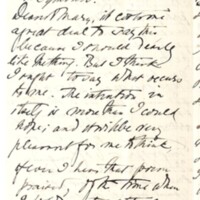 Dearest Mary, it costs me
a great deal to say this
(because I should dearly
like getting. But I think
I ought to say what occurs
to me. The intention in
itself is more than I could
hope; and it will be very
pleasant for me to think
if ever I hear that poem
praised, of the time when